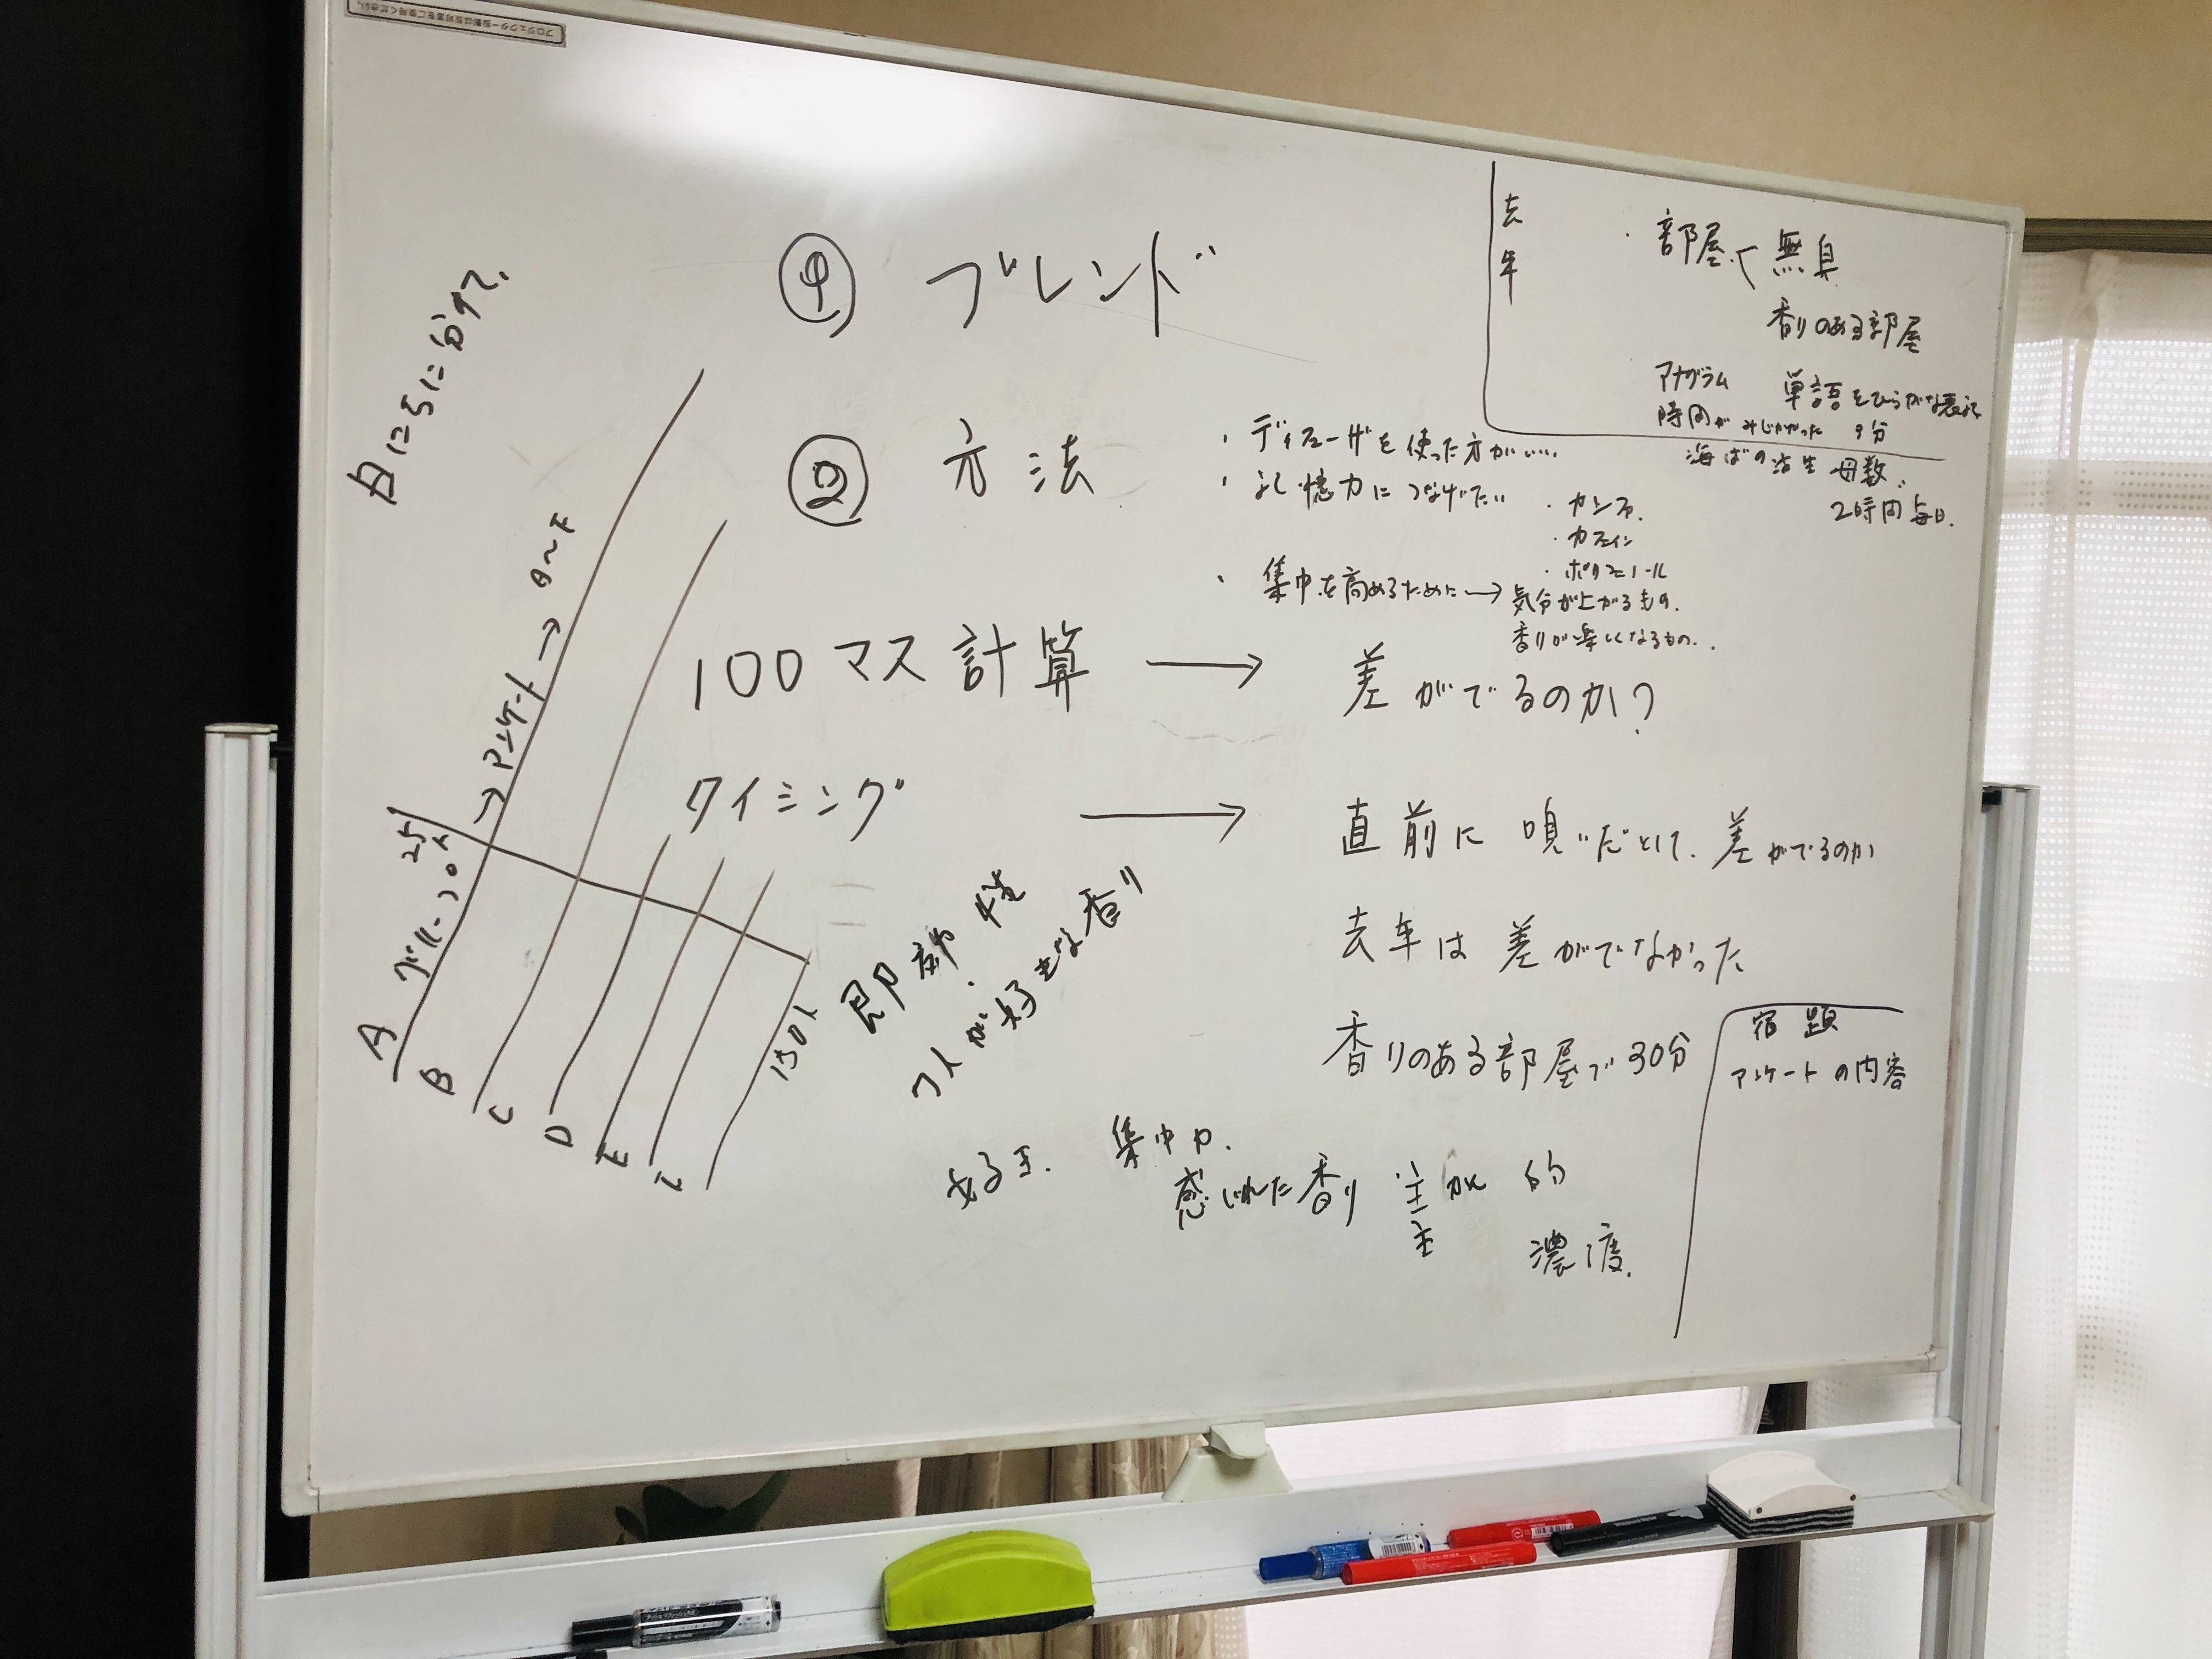 プロジェクター投影は反対面をご使用ください。
日にちに分けて、
① ブレンド
去年
・部屋で無臭
香りのある部屋
アナグラム 単語をひらがな表記
時間がみじかかった 9分
海ばの活生 母数
2時間毎日.
② 方法
・ディフューザを使った方がいい…
・記憶力につなげたい
・カンファ.
・カフェイン
・ポリフェノール
・集中を高めるために → 気分が上がるもの.
香りが楽しくなるもの..
100マス計算 → 差がでるのか?
タイミング → 直前に嗅いだとして、差がでるのか
去年は差がでなかった
香りのある部屋で30分
A グループ 25人 → アンケート → A〜F
B
C
D
E
F
150人
即効性
1人が好きな香り
好き. 集中力.
感じれた香り 主観的
主
濃度.
宿題
アンケートの内容